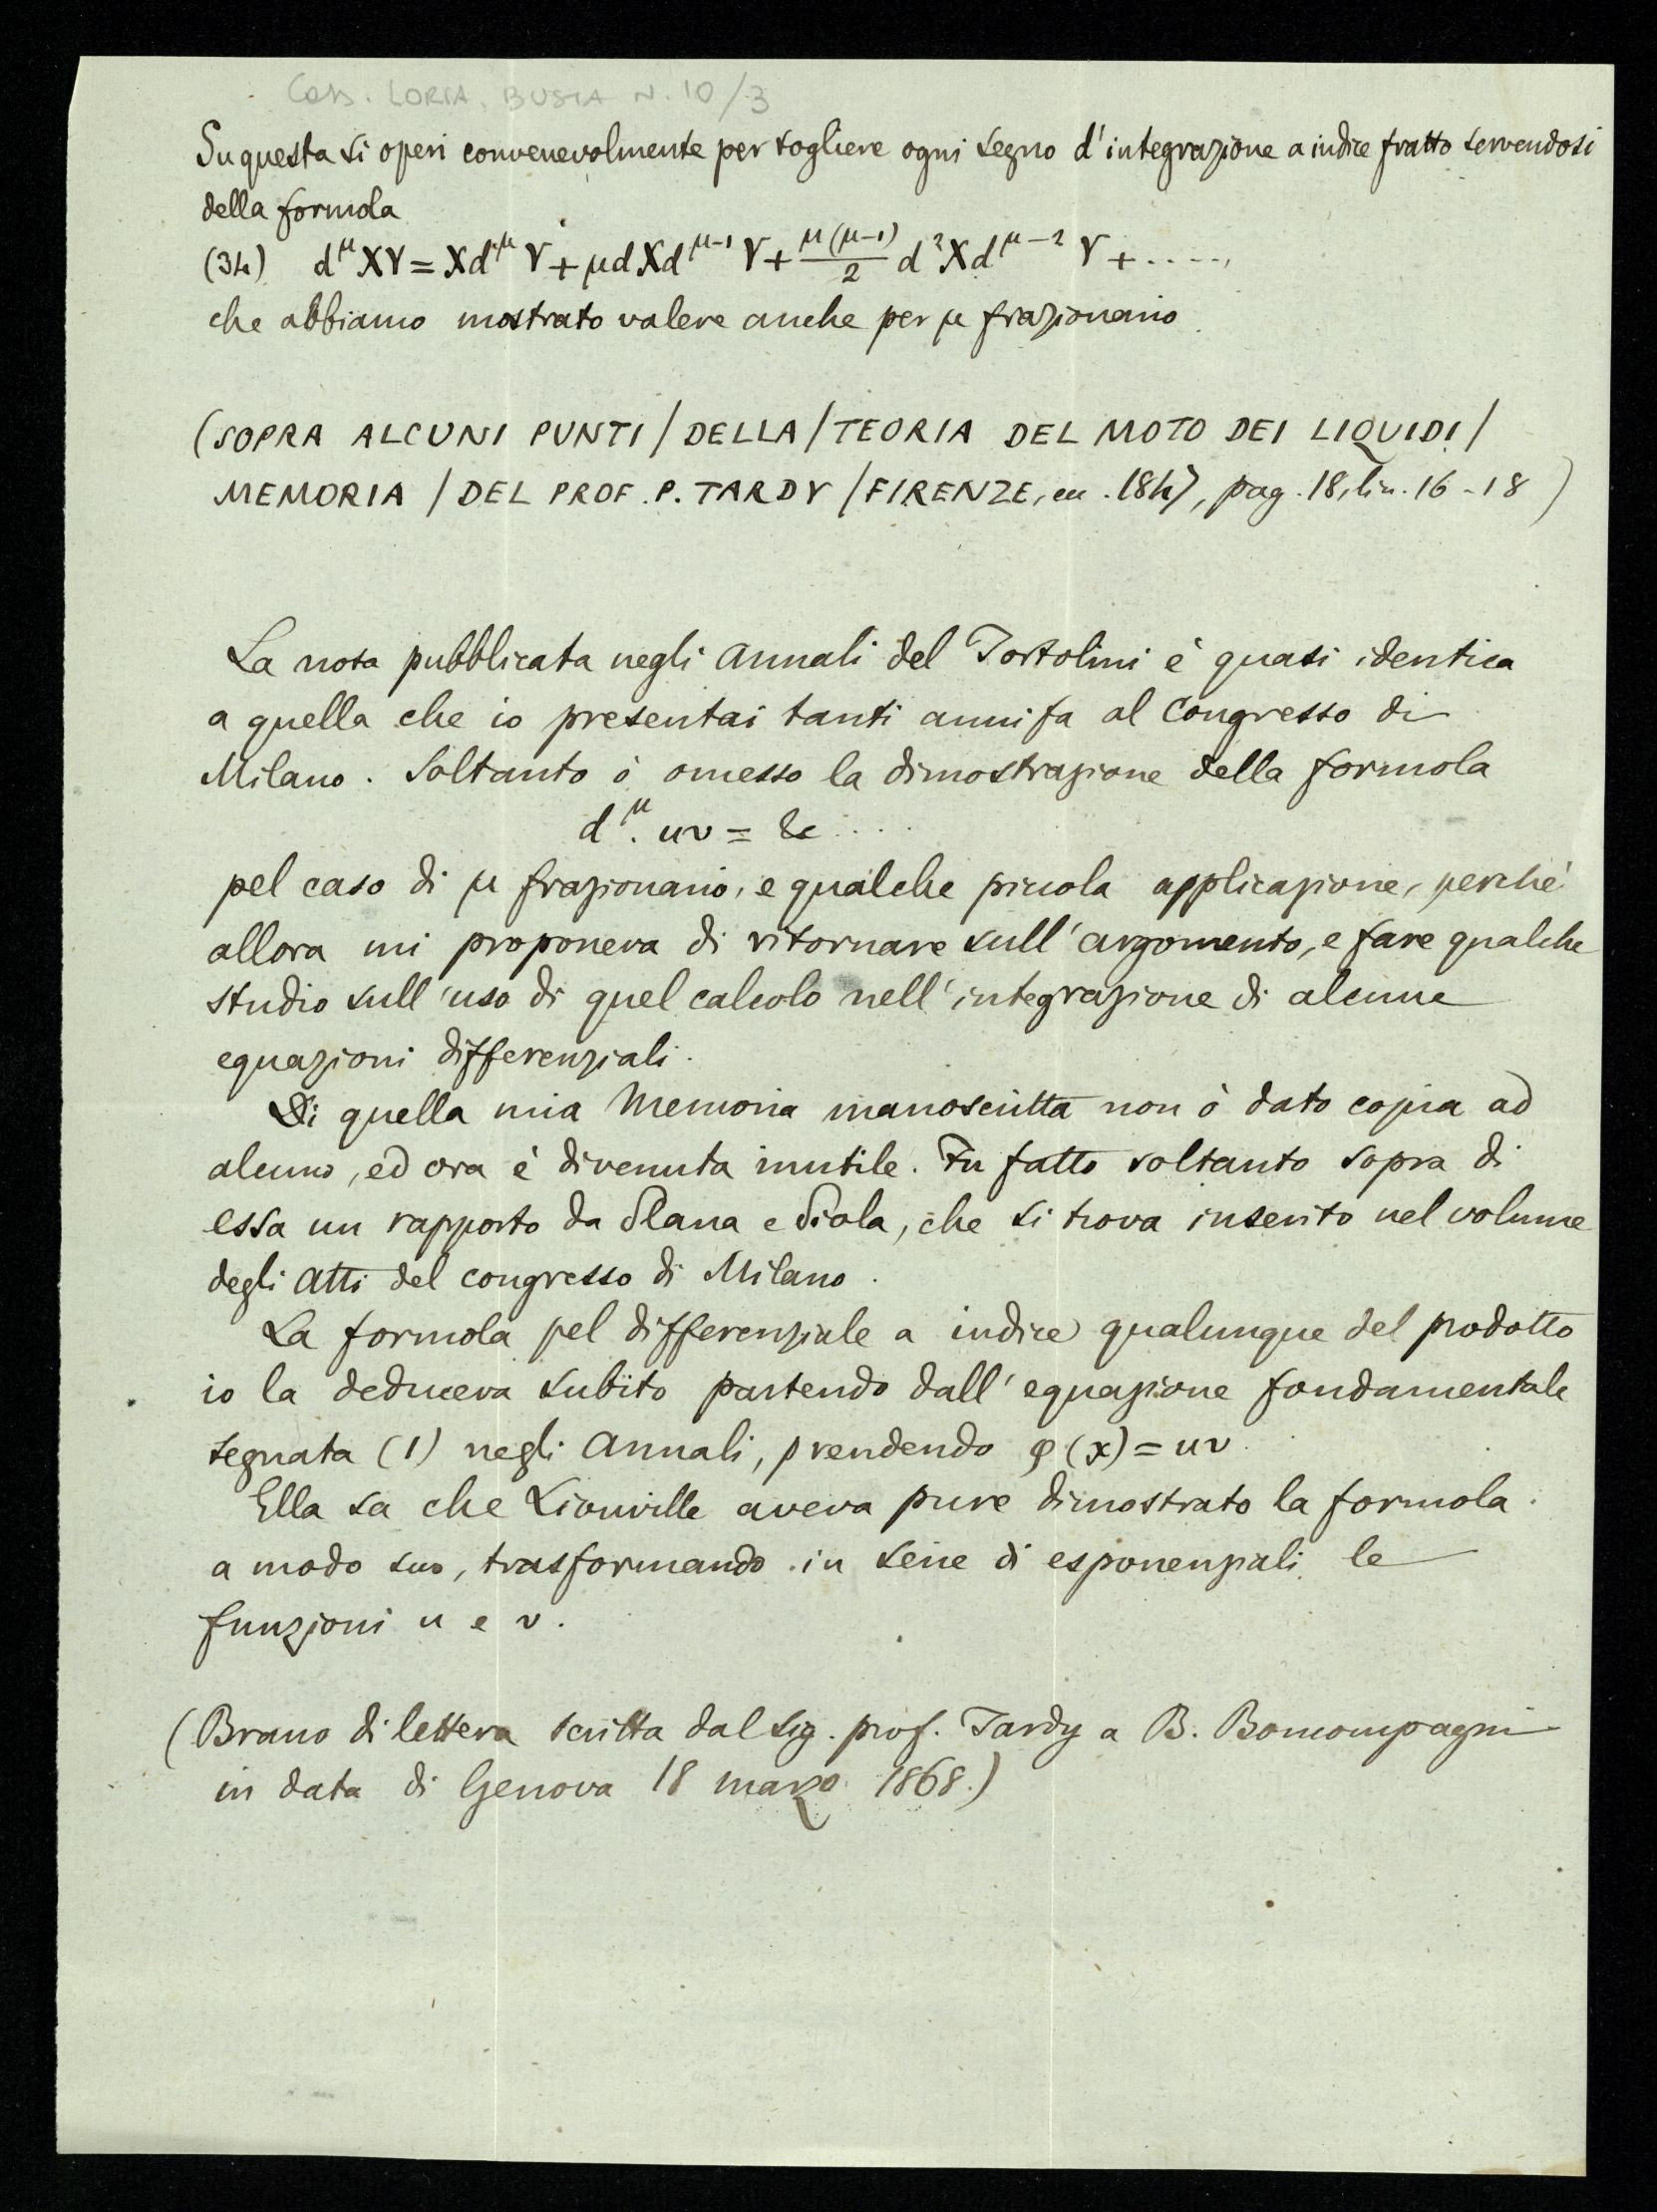 Cass. LORIA. BUSTA N. 10/3
Su questa si operi convenevolmente per togliere ogni segno d'integrazione a indice fratto servendosi
della formola
(34) d^μ XY = X d^μ Y + μ d X d^{μ-1} Y + \frac{μ(μ-1)}{2} d² X d^{μ-2} Y + .....,
che abbiamo mostrato valere anche per μ frazionario.
(SOPRA ALCUNI PUNTI / DELLA / TEORIA DEL MOTO DEI LIQUIDI /
MEMORIA / DEL PROF. P. TARDY / FIRENZE, ecc. 1847, pag. 18, lin. 16-18)
La nota pubblicata negli Annali del Tortolini è quasi identica
a quella che io presentai tanti anni fa al Congresso di
Milano. Soltanto ò omesso la dimostrazione della formola
d^μ. uv = &c....
pel caso di μ frazionario, e qualche piccola applicazione, perchè
allora mi proponeva di ritornare sull'argomento, e fare qualche
studio sull'uso di quel calcolo nell'integrazione di alcune
equazioni differenziali.
Di quella mia Memoria manoscritta non ò dato copia ad
alcuno, ed ora è divenuta inutile. Fu fatto soltanto sopra di
essa un rapporto da Plana e Piola, che si trova inserito nel volume
degli Atti del congresso di Milano.
La formola pel differenziale a indice qualunque del prodotto
io la deduceva subito partendo dall'equazione fondamentale
segnata (1) negli Annali, prendendo φ(x) = uv.
Ella sa che Liouville aveva pure dimostrato la formola
a modo suo, trasformando in serie di esponenziali le
funzioni u e v.
(Brano di lettera scritta dal sig. prof. Tardy a B. Boncompagni
in data di Genova 18 marzo 1868.)